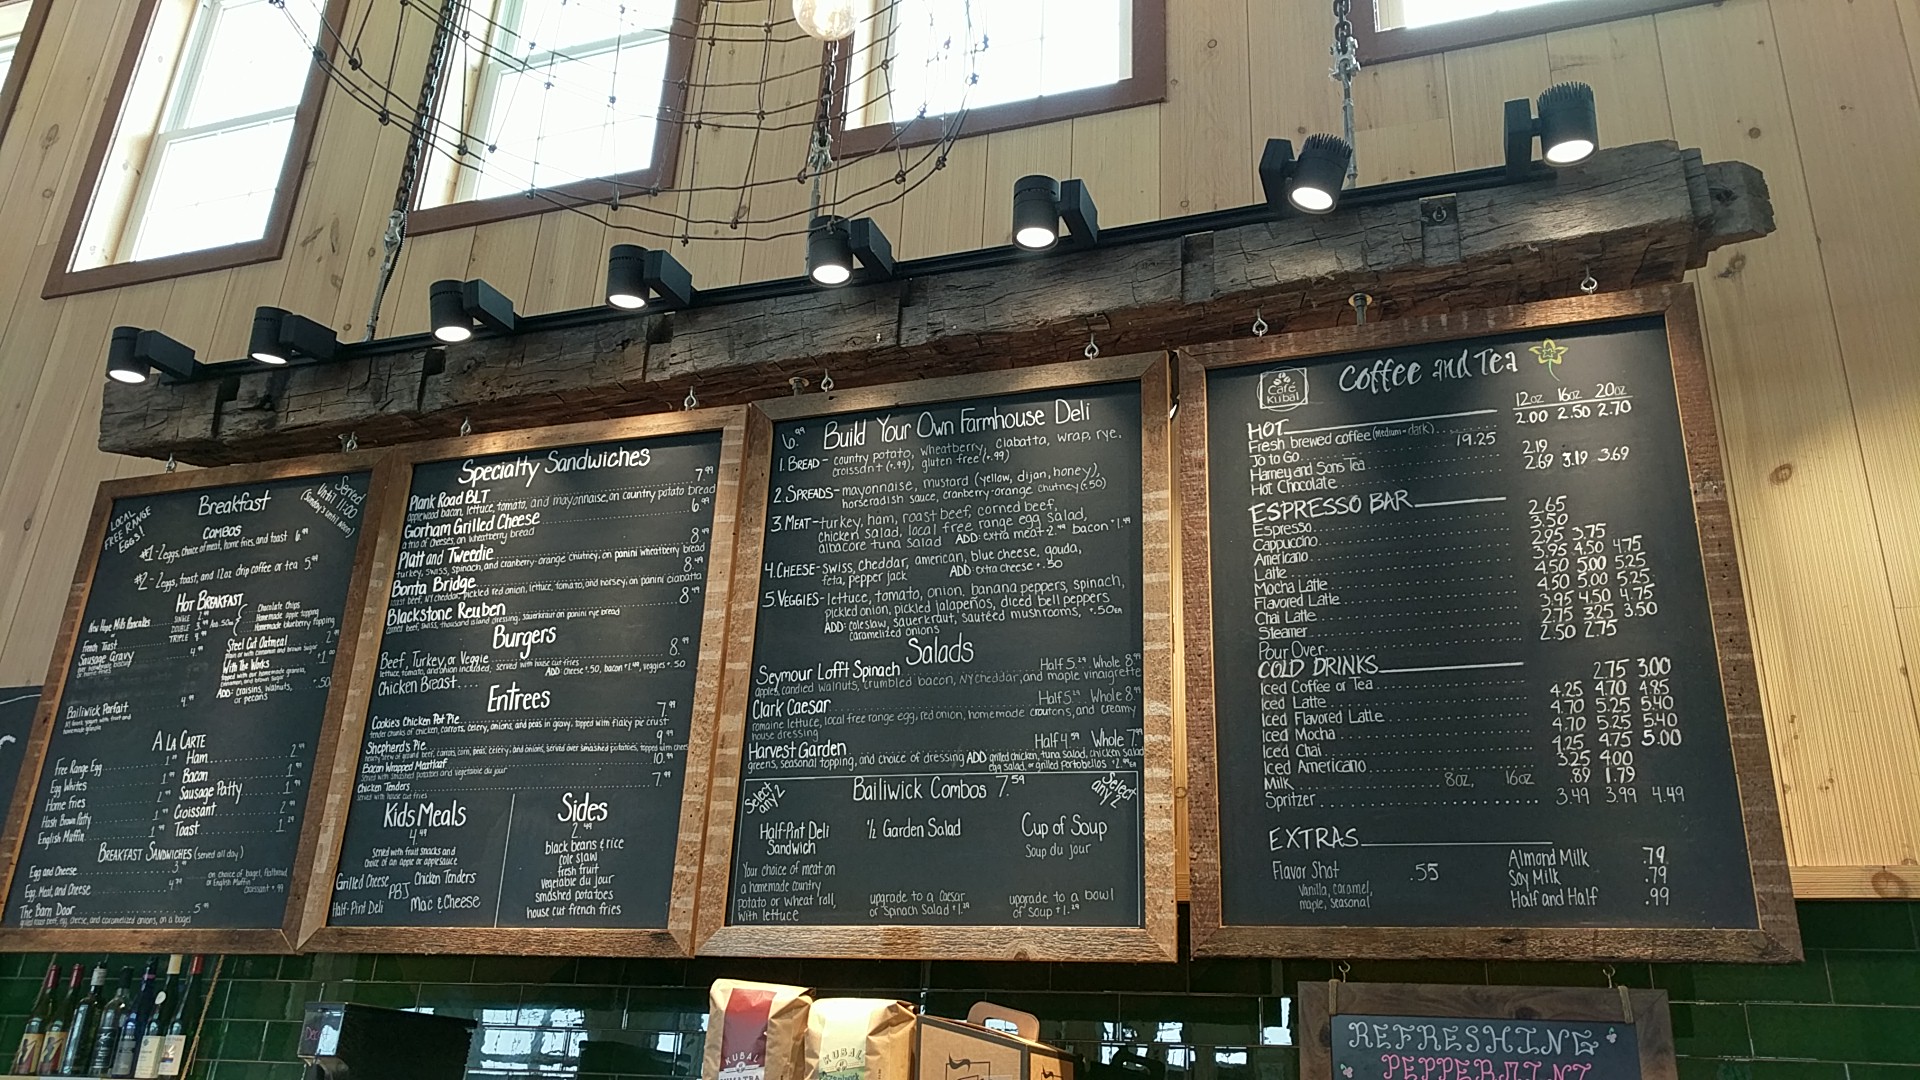 Breakfast
Served
Until
11:00
(Sunday's until Noon)
LOCAL
FREE RANGE
EGGS!
COMBOS
#1 - 2 eggs, choice of meat, home fries, and toast 6.99
#2 - 2 eggs, toast, and 12oz drip coffee or tea 5.99
HOT BREAKFAST
New Hope Mills Pancakes
SINGLE
DOUBLE
TRIPLE
Chocolate Chips
Homemade apple topping
Homemade blueberry topping
French Toast
Sausage Gravy
Steel Cut Oatmeal
With The Works
topped with our homemade granola,
cinnamon, and brown sugar
ADD: craisins, walnuts, .50
or pecans
Bailiwick Parfait 4.99
A LA CARTE
Free Range Egg
Egg Whites
Home Fries
Hash Brown Patty
English Muffin
Ham
Bacon
Sausage Patty
Croissant
Toast
BREAKFAST SANDWICHES (served all day)
Egg and Cheese
Egg, Meat, and Cheese
on choice of bagel, flatbread,
or English Muffin
croissant +.99
The Barn Door
Specialty Sandwiches
Plank Road BLT 7.99
applewood bacon, lettuce, tomato, and mayonnaise, on country potato bread
Gorham Grilled Cheese 6.99
a trio of cheeses, on wheatberry bread
Platt and Tweedie 8.99
turkey, swiss, spinach, and cranberry-orange chutney, on panini wheatberry bread
Bonta Bridge 8.99
roast beef, NY cheddar, pickled red onion, lettuce, tomato, and horsey, on panini ciabatta
Blackstone Reuben 8.99
corned beef, swiss, thousand island dressing, sauerkraut on panini rye bread
Burgers
Beef, Turkey, or Veggie 8.99
lettuce, tomato, and onion included, served with house cut fries
ADD: cheese +.50, bacon +1.99, veggies +.50
Chicken Breast....
Entrees
Cookie's Chicken Pot Pie 7.99
tender chunks of chicken, carrots, celery, onions, and peas in gravy, topped with flaky pie crust
Shepherd's Pie 9.99
Bacon Wrapped Meatloaf 10.99
served with smashed potatoes and vegetable du jour
Chicken Tenders 7.99
served with house cut fries
Kids Meals
4.99
Served with fruit snacks and
choice of an apple or applesauce
Grilled Cheese
PBJ
Chicken Tenders
Half-Pint Deli
Mac & Cheese
Sides
2.49
black beans & rice
cole slaw
fresh fruit
vegetable du jour
smashed potatoes
house cut french fries
6.99 Build Your Own Farmhouse Deli
1. BREAD - country potato, wheatberry, ciabatta, wrap, rye,
croissant (+.99), gluten free (+.99)
2. SPREADS - mayonnaise, mustard (yellow, dijon, honey),
horseradish sauce, cranberry-orange chutney (+.50)
3. MEAT - turkey, ham, roast beef, corned beef,
chicken salad, local free range egg salad,
albacore tuna salad ADD: extra meat +2.99 bacon +1.99
4. CHEESE - swiss, cheddar, american, blue cheese, gouda,
feta, pepper jack ADD: extra cheese +.50
5. VEGGIES - lettuce, tomato, onion, banana peppers, spinach,
pickled onion, pickled jalapeños, diced bell peppers
ADD: coleslaw, sauerkraut, sautéed mushrooms, +.50ea
caramelized onions
Salads
Seymour Lofft Spinach Half 5.29 Whole 8.99
apples, candied walnuts, crumbled bacon, NY cheddar, and maple vinaigrette
Clark Caesar Half 5.29 Whole 8.99
romaine lettuce, local free range egg, red onion, homemade croutons, and creamy
house dressing
Harvest Garden Half 4.59 Whole 7.99
greens, seasonal topping, and choice of dressing ADD grilled chicken, tuna salad, chicken salad
egg salad, or grilled portobellos +2.99ea
Select
any 2
Bailiwick Combos 7.59
Select
any 2
Half-Pint Deli
Sandwich
½ Garden Salad
Cup of Soup
Soup du jour
Your choice of meat on
a homemade country
potato or wheat roll,
with lettuce
upgrade to a Caesar
or Spinach Salad +1.29
upgrade to a bowl
of soup +1.29
Café
Kubal
Coffee and Tea
12oz 16oz 20oz
HOT
Fresh brewed coffee (medium-dark) 2.00 2.50 2.70
Jo to Go 19.25
Harney and Sons Tea 2.19
Hot Chocolate 2.69 3.19 3.69
ESPRESSO BAR
Espresso 2.65
Cappuccino 3.50
Americano 2.95 3.75
Latte 3.95 4.50 4.75
Mocha Latte 4.50 5.00 5.25
Flavored Latte 4.50 5.00 5.25
Chai Latte 3.95 4.50 4.75
Steamer 2.75 3.25 3.50
Pour Over 2.50 2.75
COLD DRINKS
Iced Coffee or Tea 2.75 3.00
Iced Latte 4.25 4.70 4.85
Iced Flavored Latte 4.70 5.25 5.40
Iced Mocha 4.70 5.25 5.40
Iced Chai 4.25 4.75 5.00
Iced Americano 3.25 4.00
Milk 8oz, 16oz .89 1.79
Spritzer 3.49 3.99 4.49
EXTRAS
Flavor Shot .55
Vanilla, caramel,
maple, seasonal
Almond Milk .79
Soy Milk .79
Half and Half .99
KUBAL
SUMATRA
KUBAL
REFRESHING
PEPPERMINT